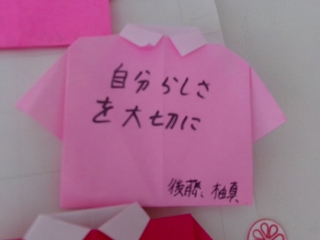 自分らしさ
を大切に
後藤柚真